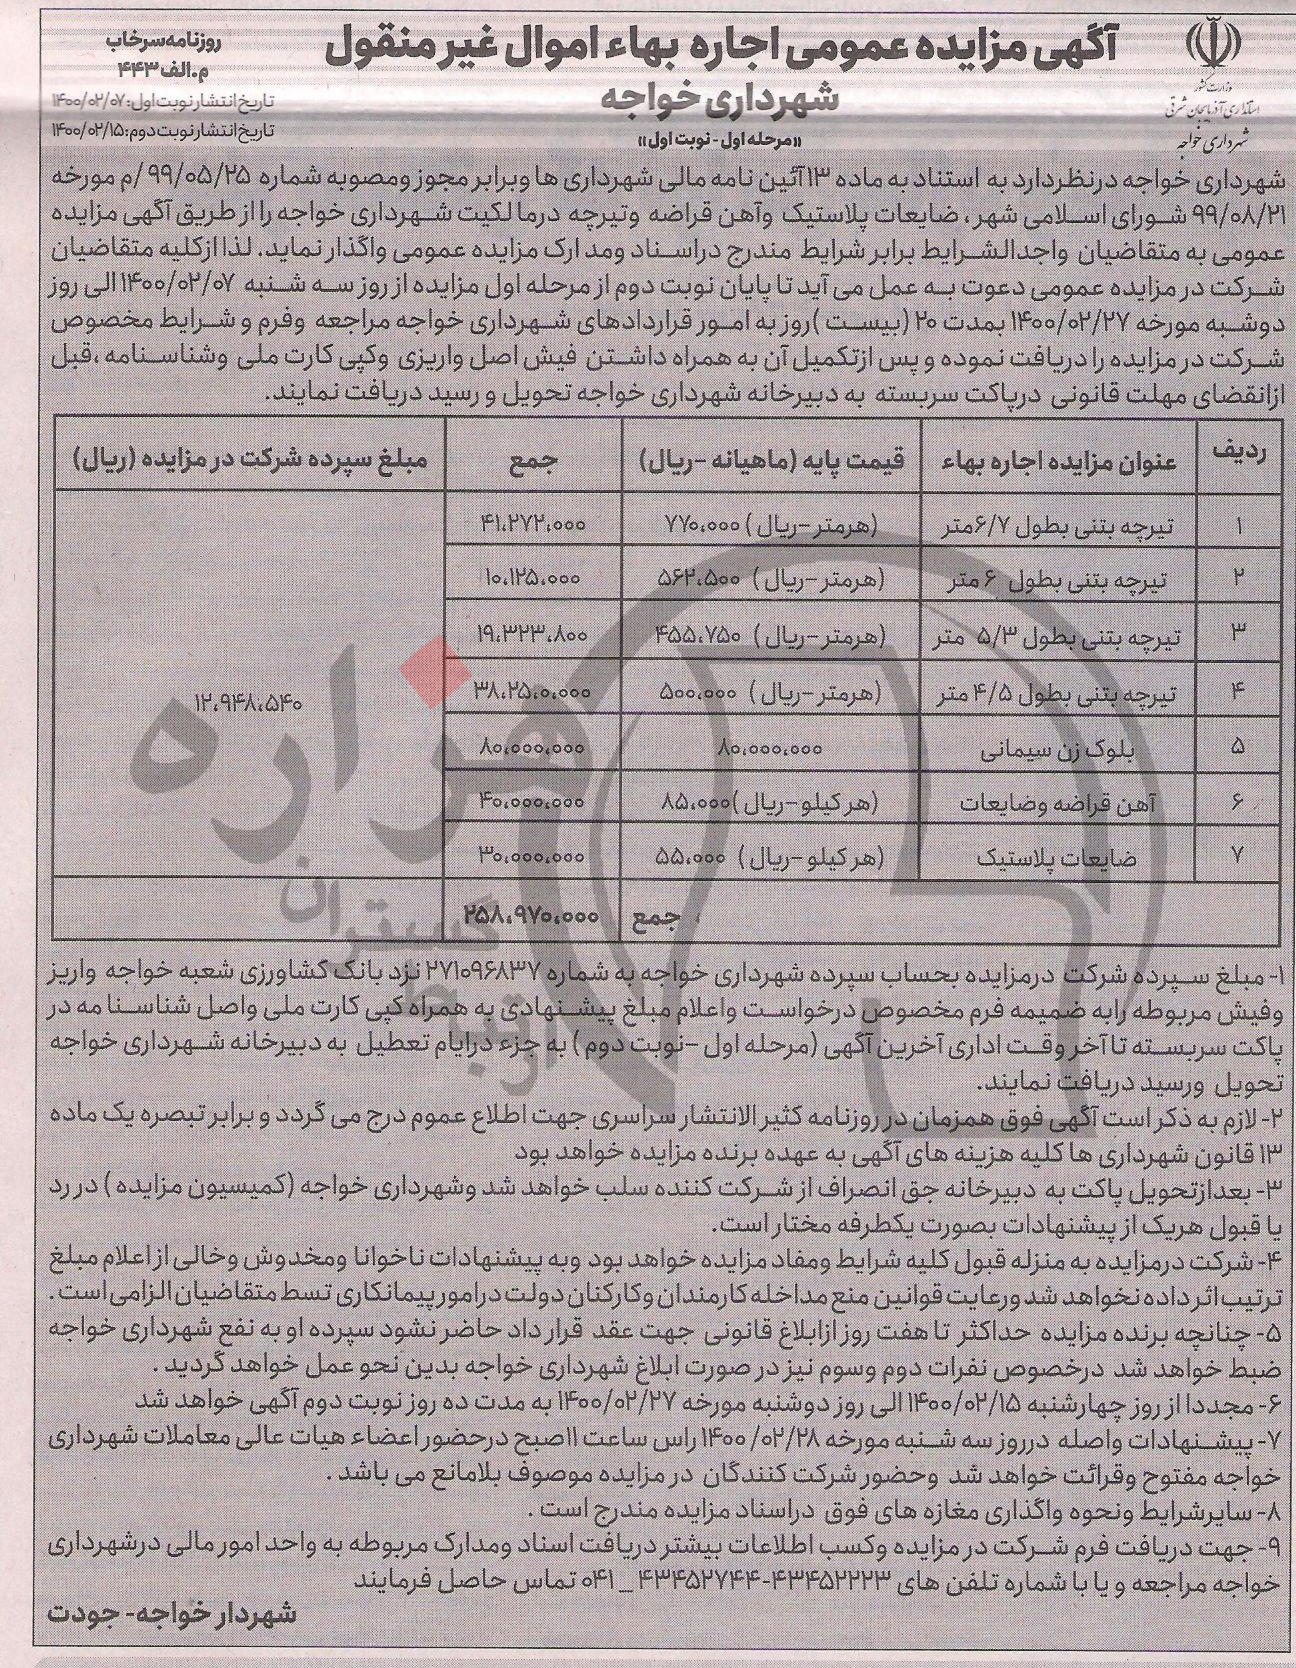 آگهی مزایده عمومی اجاره بهاء اموال غیر منقول
شهرداری خواجه
«مرحله اول - نوبت اول»
وزارت کشور
استانداری آذربایجان شرقی
شهرداری خواجه
روزنامه سرخاب
م.الف ۴۴۳
تاریخ انتشار نوبت اول: ۱۴۰۰/۰۲/۰۷
تاریخ انتشار نوبت دوم: ۱۴۰۰/۰۲/۱۵
شهرداری خواجه درنظردارد به استناد به ماده ۱۳آئین نامه مالی شهرداری ها وبرابر مجوز ومصوبه شماره ۹۹/۰۵/۲۵/م مورخه
۹۹/۰۸/۲۱ شورای اسلامی شهر، ضایعات پلاستیک وآهن قراضه وتیرچه درمالکیت شهرداری خواجه را از طریق آگهی مزایده
عمومی به متقاضیان واجدالشرایط برابر شرایط مندرج دراسناد ومدارک مزایده عمومی واگذار نماید. لذا ازکلیه متقاضیان
شرکت در مزایده عمومی دعوت به عمل می آید تا پایان نوبت دوم از مرحله اول مزایده از روز سه شنبه ۱۴۰۰/۰۲/۰۷ الی روز
دوشنبه مورخه ۱۴۰۰/۰۲/۲۷ بمدت ۲۰ (بیست )روز به امور قراردادهای شهرداری خواجه مراجعه وفرم و شرایط مخصوص
شرکت در مزایده را دریافت نموده و پس ازتکمیل آن به همراه داشتن فیش اصل واریزی وکپی کارت ملی وشناسنامه ،قبل
ازانقضای مهلت قانونی درپاکت سربسته به دبیرخانه شهرداری خواجه تحویل و رسید دریافت نمایند.
ردیف عنوان مزایده اجاره بهاء قیمت پایه (ماهیانه -ریال) جمع مبلغ سپرده شرکت در مزایده (ریال)
۱ تیرچه بتنی بطول ۶/۷متر (هرمتر-ریال) ۷۷۰،۰۰۰ ۴۱،۲۷۲،۰۰۰
۲ تیرچه بتنی بطول ۶ متر (هرمتر-ریال) ۵۶۲،۵۰۰ ۱۰،۱۲۵،۰۰۰
۳ تیرچه بتنی بطول ۵/۳ متر (هرمتر-ریال) ۴۵۵،۷۵۰ ۱۹،۳۲۳،۸۰۰
۴ تیرچه بتنی بطول ۴/۵ متر (هرمتر-ریال) ۵۰۰،۰۰۰ ۳۸،۲۵۰،۰۰۰
۱۲،۹۴۸،۵۴۰
۵ بلوک زن سیمانی ۸۰،۰۰۰،۰۰۰ ۸۰،۰۰۰،۰۰۰
۶ آهن قراضه وضایعات (هر کیلو-ریال)۸۵،۰۰۰ ۴۰،۰۰۰،۰۰۰
۷ ضایعات پلاستیک (هر کیلو-ریال) ۵۵،۰۰۰ ۳۰،۰۰۰،۰۰۰
جمع ۲۵۸،۹۷۰،۰۰۰
۱- مبلغ سپرده شرکت درمزایده بحساب سپرده شهرداری خواجه به شماره ۲۷۱۰۹۶۸۳۷ نزد بانک کشاورزی شعبه خواجه واریز
وفیش مربوطه رابه ضمیمه فرم مخصوص درخواست واعلام مبلغ پیشنهادی به همراه کپی کارت ملی واصل شناسنامه در
پاکت سربسته تا آخر وقت اداری آخرین آگهی (مرحله اول -نوبت دوم) به جزء درایام تعطیل به دبیرخانه شهرداری خواجه
تحویل ورسید دریافت نمایند.
۲- لازم به ذکر است آگهی فوق همزمان در روزنامه کثیر الانتشار سراسری جهت اطلاع عموم درج می گردد و برابر تبصره یک ماده
۱۳ قانون شهرداری ها کلیه هزینه های آگهی به عهده برنده مزایده خواهد بود
۳- بعدازتحویل پاکت به دبیرخانه جق انصراف از شرکت کننده سلب خواهد شد وشهرداری خواجه (کمیسیون مزایده) در رد
یا قبول هریک از پیشنهادات بصورت یکطرفه مختار است.
۴-شرکت درمزایده به منزله قبول کلیه شرایط ومفاد مزایده خواهد بود وبه پیشنهادات ناخوانا ومخدوش وخالی از اعلام مبلغ
ترتیب اثر داده نخواهد شد ورعایت قوانین منع مداخله کارمندان وکارکنان دولت درامور پیمانکاری تسط متقاضیان الزامی است.
۵- چنانچه برنده مزایده حداکثر تا هفت روز ازابلاغ قانونی جهت عقد قرار داد حاضر نشود سپرده او به نفع شهرداری خواجه
ضبط خواهد شد درخصوص نفرات دوم وسوم نیز در صورت ابلاغ شهرداری خواجه بدین نحو عمل خواهد گردید .
۶- مجددا از روز چهارشنبه ۱۴۰۰/۰۲/۱۵ الی روز دوشنبه مورخه ۱۴۰۰/۰۲/۲۷ به مدت ده روز نوبت دوم آگهی خواهد شد
۷-پیشنهادات واصله درروز سه شنبه مورخه ۱۴۰۰/۰۲/۲۸ راس ساعت ۱۱صبح درحضور اعضاء هیات عالی معاملات شهرداری
خواجه مفتوح وقرائت خواهد شد وحضور شرکت کنندگان در مزایده موصوف بلامانع می باشد .
۸- سایرشرایط ونحوه واگذاری مغازه های فوق دراسناد مزایده مندرج است .
۹- جهت دریافت فرم شرکت در مزایده وکسب اطلاعات بیشتر دریافت اسناد ومدارک مربوطه به واحد امور مالی درشهرداری
خواجه مراجعه و یا با شماره تلفن های ۴۳۴۵۲۲۲۳-۴۳۴۵۲۷۴۴ _ ۰۴۱ تماس حاصل فرمایند
شهردار خواجه- جودت
هزاره
گستران
ارتباط